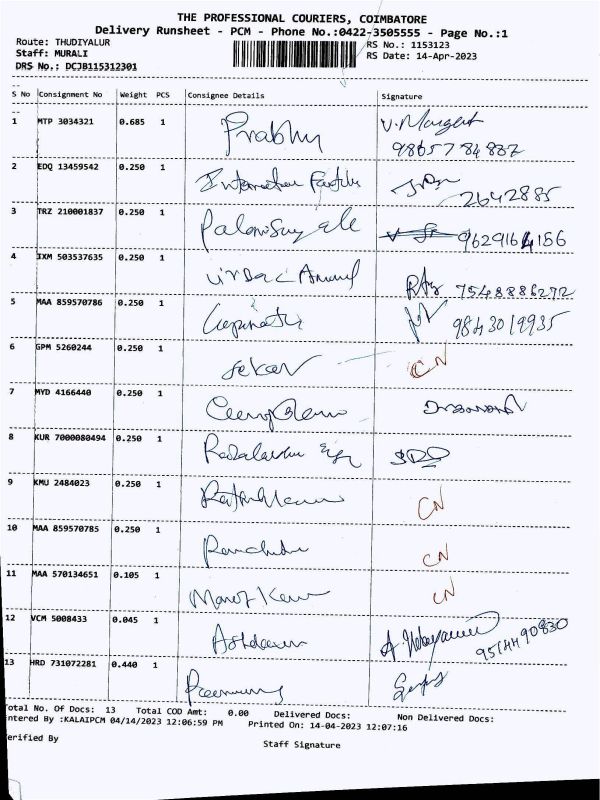 THE PROFESSIONAL COURIERS, COIMBATORE
Delivery Runsheet - PCM - Phone No.:0422-3505555 - Page No.:1
Route: THUDIYALUR RS No.: 1153123
Staff: MURALI RS Date: 14-Apr-2023
DRS No.: DCJB115312301
S No Consignment No Weight PCS Consignee Details Signature
1 MTP 3034321 0.685 1 Prabhu V. Margret
9865784887
2 EDQ 13459542 0.250 1 2642885
3 TRZ 210001837 0.250 1 9629164156
4 IXM 503537635 0.250 1 Anand 7548886272
5 MAA 859570786 0.250 1 Gopinath 9843019935
6 GPM 5260244 0.250 1 Sekar CN
7 MYD 4166440 0.250 1
8 KUR 7000080494 0.250 1
9 KMU 2484023 0.250 1 CN
10 MAA 859570785 0.250 1 CN
11 MAA 570134651 0.105 1 Manoj Kumar CN
12 VCM 5008433 0.045 1 9514490830
13 HRD 731072281 0.440 1
otal No. Of Docs: 13 Total COD Amt: 0.00 Delivered Docs: Non Delivered Docs:
ntered By :KALAIPCM 04/14/2023 12:06:59 PM Printed On: 14-04-2023 12:07:16
erified By Staff Signature